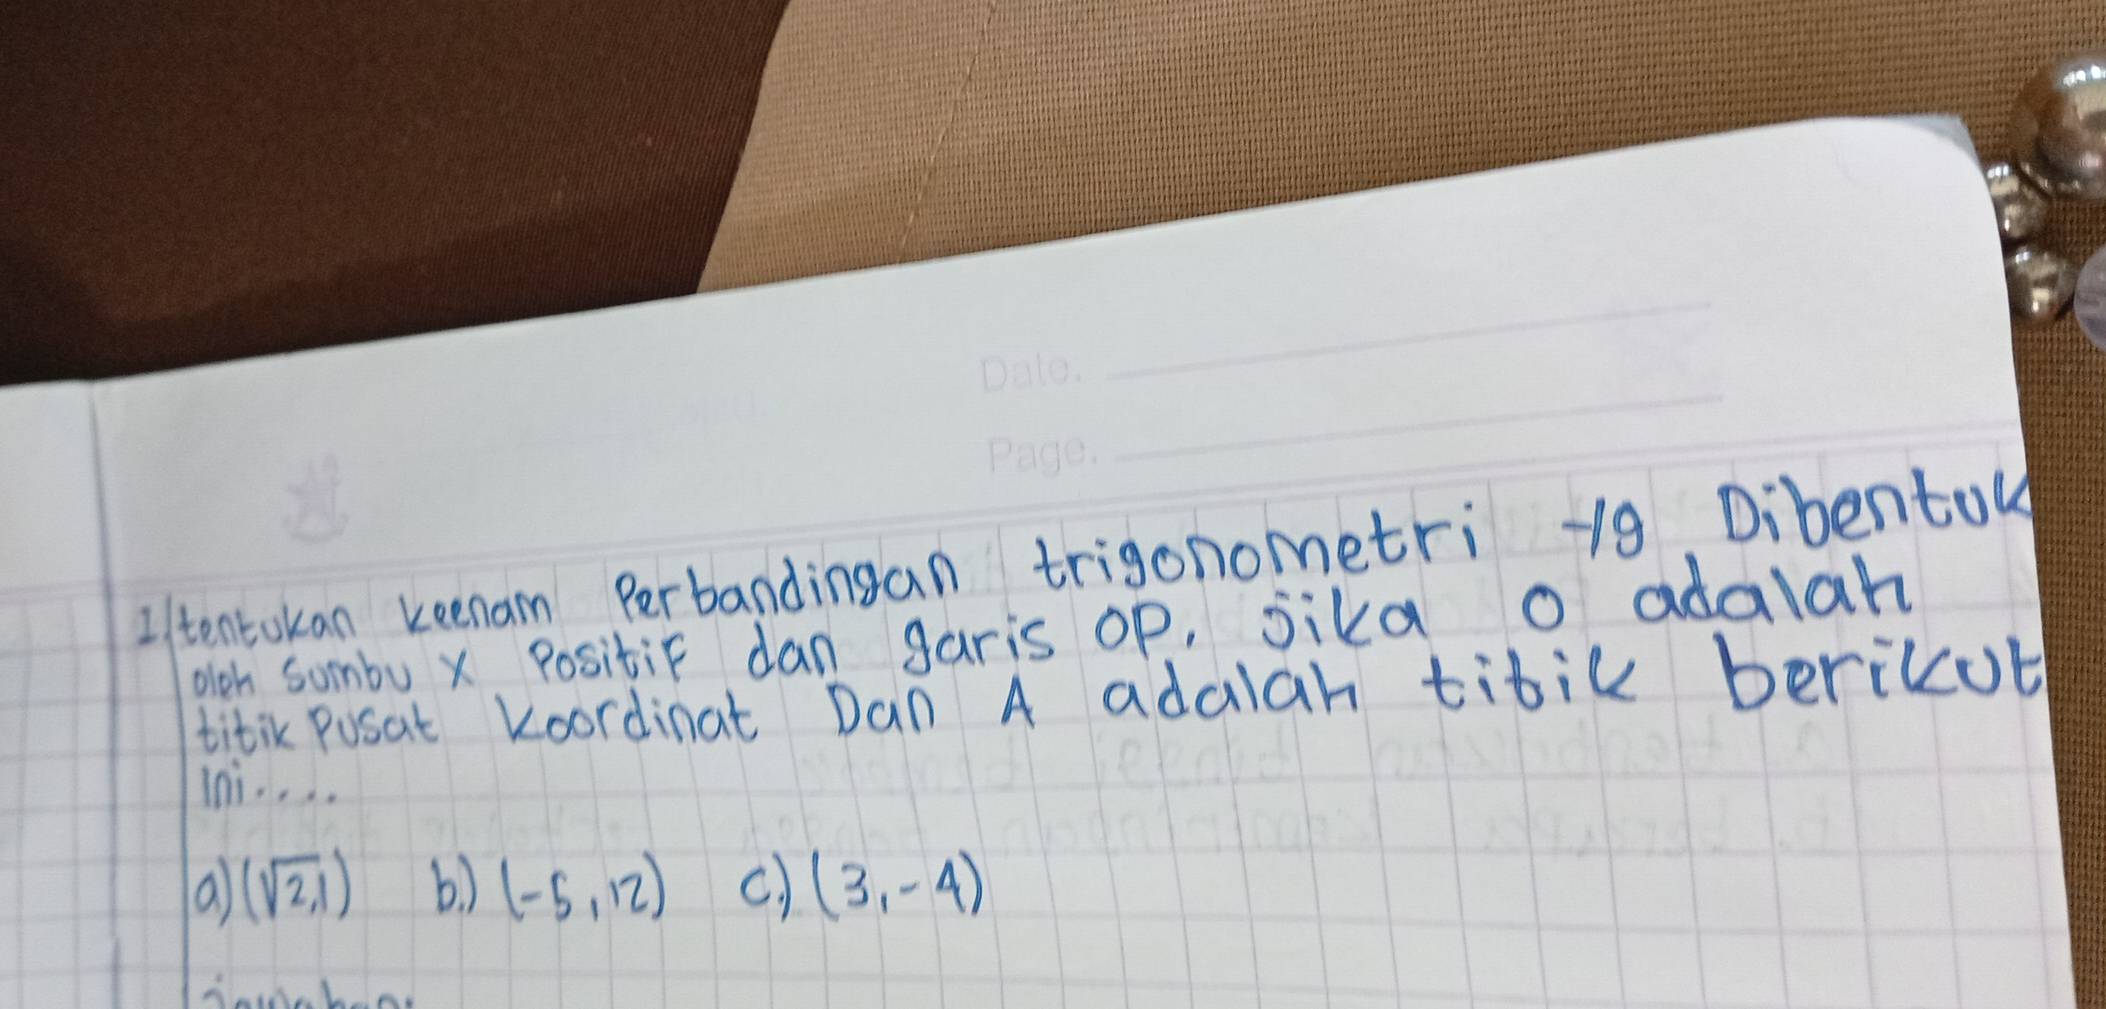 Date.
Page.
1/ tentukan keenam Perbandingan trigonometri yg Dibentuk
oleh Sumbu X Positif dan garis OP. Jika O adalah
titik Pusat Koordinat Dan A adalah titik berikut
ini....
a) (√2,1) b.) (-5,12) c.) (3,-4)